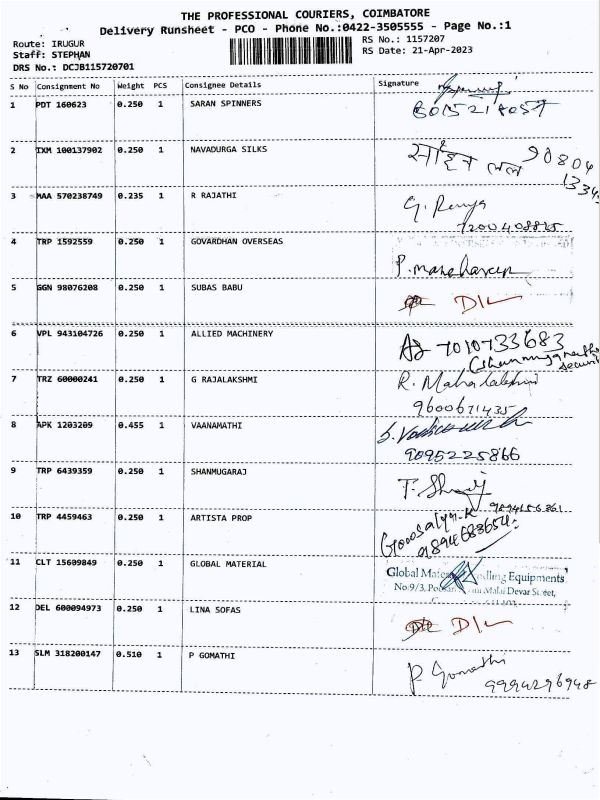 THE PROFESSIONAL COURIERS, COIMBATORE
Delivery Runsheet - PCO - Phone No.:0422-3505555 - Page No.:1
Route: IRUGUR RS No.: 1157207
Staff: STEPHAN RS Date: 21-Apr-2023
DRS No.: DCJB115720701
S No Consignment No Weight PCS Consignee Details Signature
1 PDT 160623 0.250 1 SARAN SPINNERS
2 IXM 100137902 0.250 1 NAVADURGA SILKS
3 MAA 570238749 0.235 1 R RAJATHI
7200408825
4 TRP 1592559 0.250 1 GOVARDHAN OVERSEAS
P. manoharan
5 GGN 98076208 0.250 1 SUBAS BABU D/L
6 VPL 943104726 0.250 1 ALLIED MACHINERY 7010733683
7 TRZ 60000241 0.250 1 G RAJALAKSHMI R. Mahalakshmi
9600671435
8 APK 1203209 0.455 1 VAANAMATHI
9095225866
9 TRP 6439359 0.250 1 SHANMUGARAJ
10 TRP 4459463 0.250 1 ARTISTA PROP
9894683654
11 CLT 15609849 0.250 1 GLOBAL MATERIAL Global Equipments
No:9/3, Devar Street,
12 DEL 600094973 0.250 1 LINA SOFAS D/L
13 SLM 318200147 0.510 1 P GOMATHI P. Gomathi
9994296948